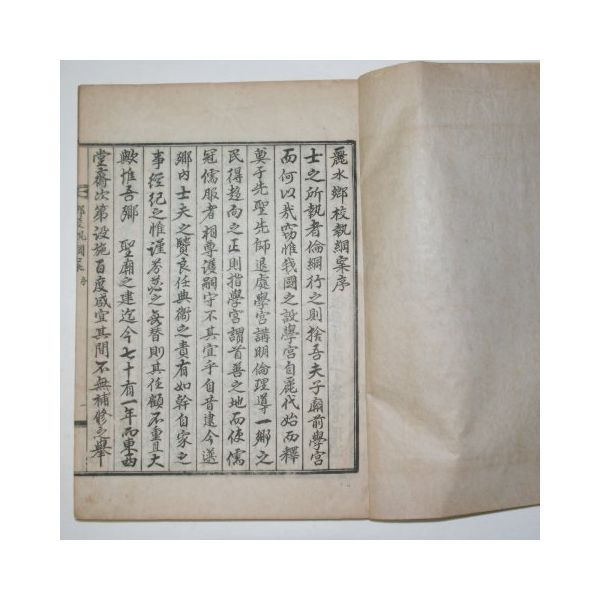 麗水鄉校執綱案序
士之所執者倫綱行之則捨吾夫子廟前學宮
而何以哉竊惟我國之設學宮自麗代始而釋
奠于先聖先師退處學宮講明倫理導一鄉之
民得趨向之正則指學宮謂首善之地而使儒
冠儒服者相尊護嗣守不其宜乎自昔逮今選
鄉內士夫之賢良任典衛之責有如幹自家之
事經紀之惟謹芬苾之無替則其任顧不重且大
歟惟吾鄉 聖廟之建迄今七十有一年而東西
堂齋次第設施百度咸宜其間不無補修之舉
鄉校執綱案 序 一